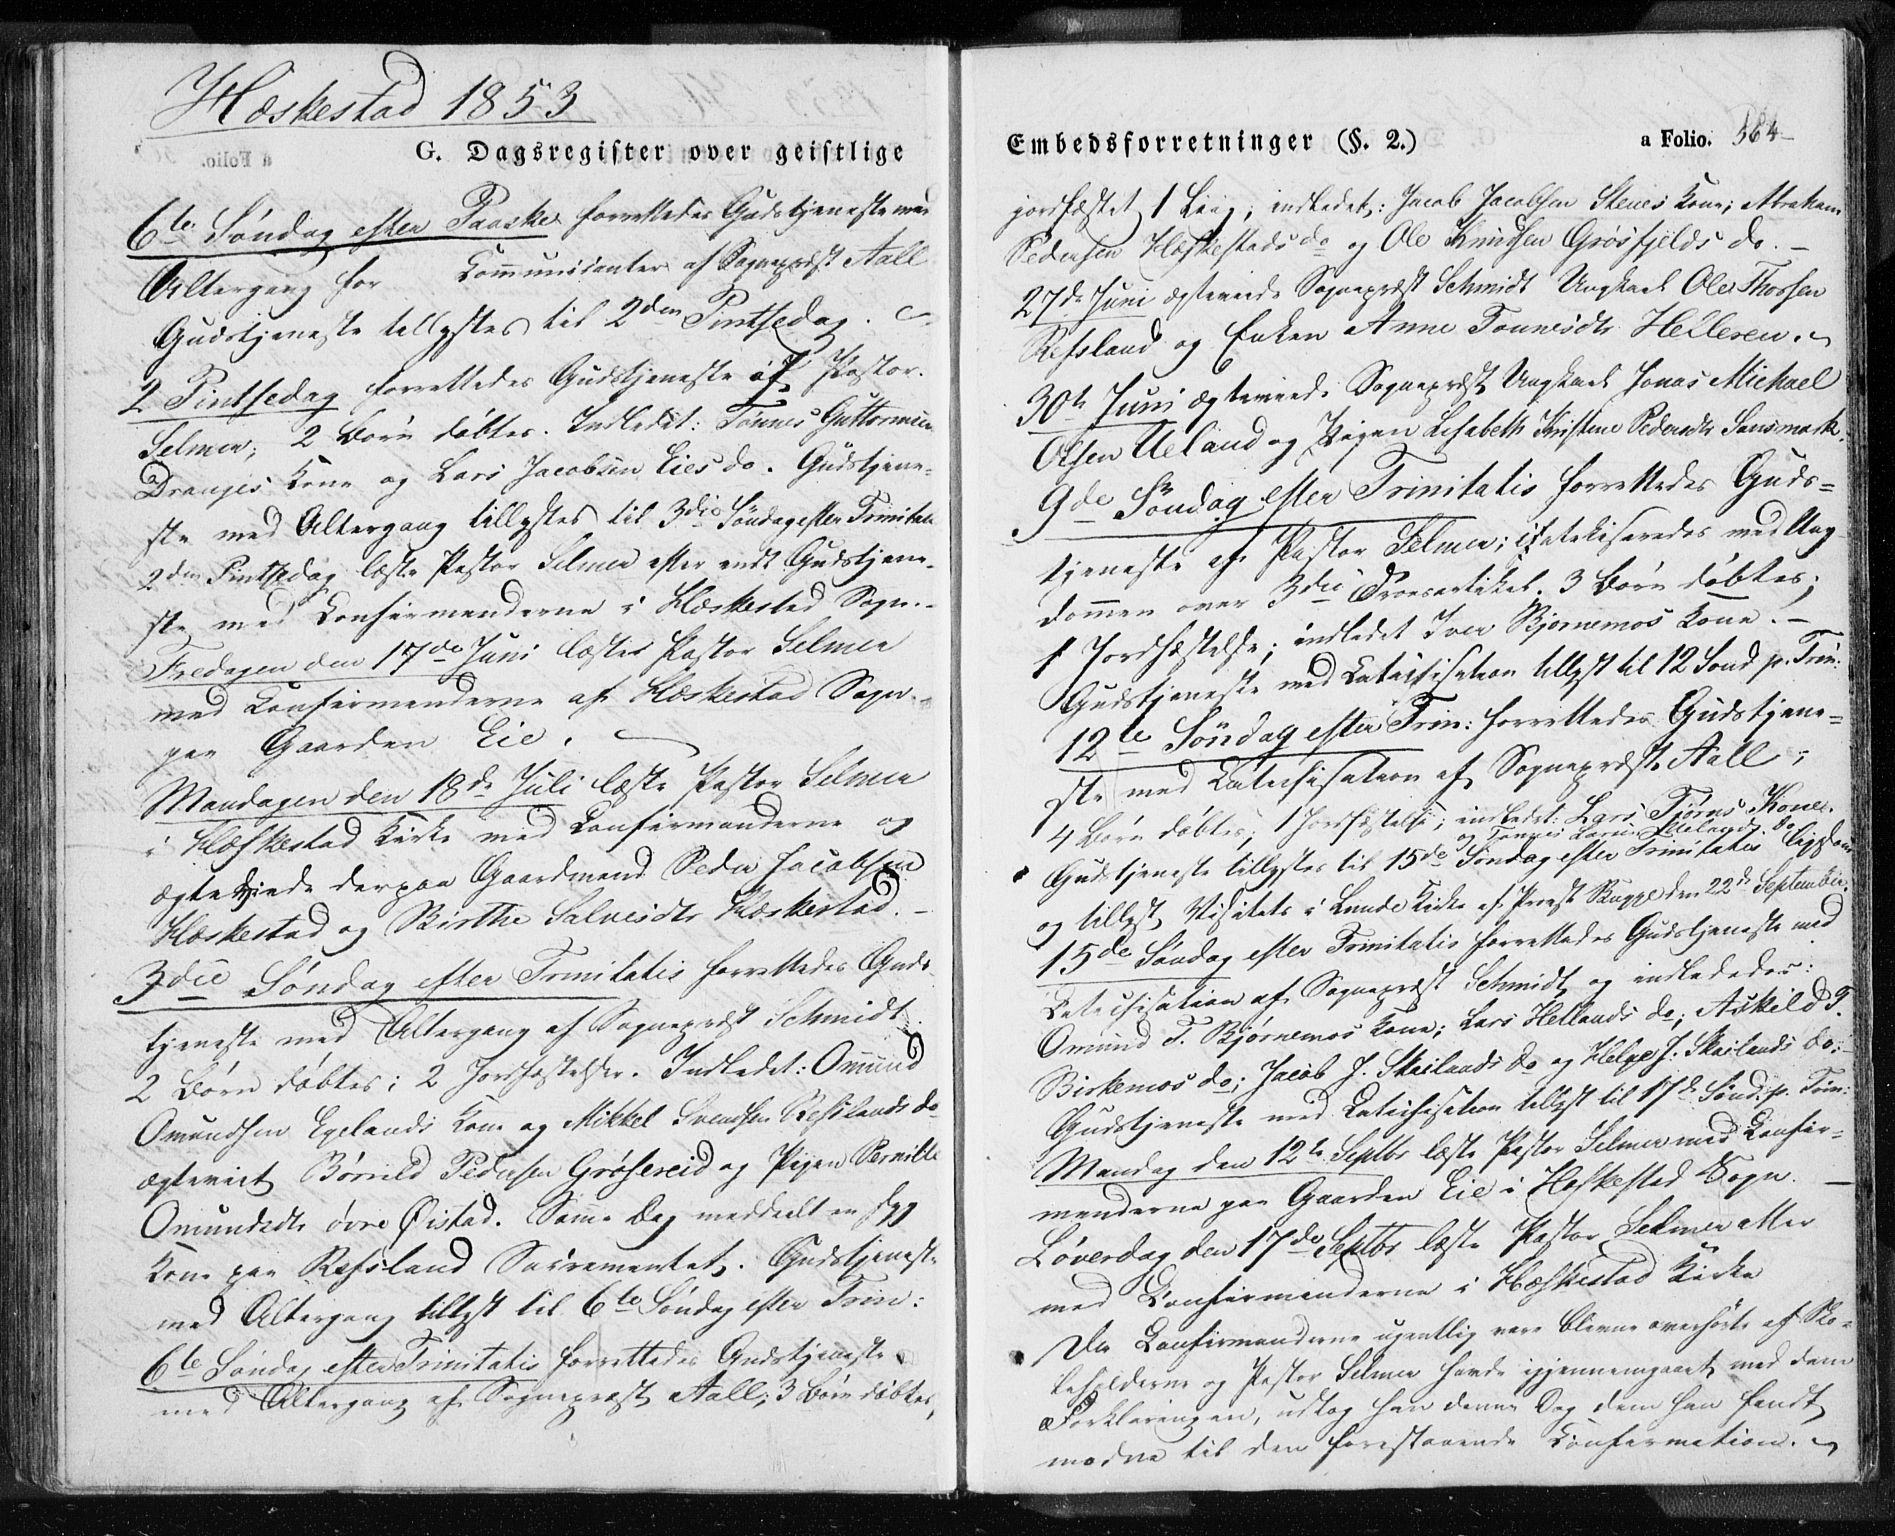 Hæskestad 1853
G. Dagsregister over geistlige
6te Søndag efter Paaske forrettedes Gudstjeneste med
Altergang for Communicanter af Sognepræst Aall
Gudstjeneste tillystes til 2den Pintsedag.
2 Pintsedag forrettedes Gudstjeneste af Pastor
Selmer, 2 Børn døbtes. Indledet: Tønnes Guttormsen
Dranges Kone og Lars Jacobsen Eies do. Gudstjene-
ste med Altergang tillystes til 3die Søndag efter Trinitatis
2den Pintsedag læste Pastor Selmer efter endt Gudstjene-
ste med Confirmanderne i Hæskestad Sogn.
Fredagen den 17de Juni læste Pastor Selmer
med Confirmanderne af Hæskestad Sogn
paa Gaarden Eie.
Mandagen den 18de Juli læste Pastor Selmer
i Hæskestad Kirke med Confirmanderne og
ægteviede derpaa Gaardmand Peder Jacobsen
Hæskestad og Birthe Salvesdtr Hæskestad.
3die Søndag efter Trinitatis forrettedes Guds-
tjeneste med Altergang af Sognepræst Schmidt
2 Børn døbtes; 2 Jordfæstelser. Indledet: Omund
Omundsen Egelands Kone og Mikkel Svendsen Refslands do
ægteviet Børrild Pedersen Grøsereid og Pigen Pernille
Omundsdtr øvre Øistad. Samme Dag meddeelt en syg
Kone paa Refsland Sacramentet. Gudstjeneste
med Altergang tillyst til 6te Søndag efter Trin:
6te Søndag efter Trinitatis forrettedes Gudstjeneste
med Altergang af Sognepræst Aall; 3 Børn døbtes,
Embedsforretninger (§. 2.)
a Folio. 364
jordfæstet 1 Liig; indledet: Jacob Jacobsen Stenes Kone; Abraham
Pedersen Hæskestads do og Ole Knudsen Grøsfjelds do.
27de Juni ægteviede Sognepræst Schmidt Ungkarl Ole Thorsen
Refsland og Enken Anne Tønnesdtr Helleren.
30te Juni ægteviede Sognepræst Ungkarl Jonas Michael
Olsen Ueland og Pigen Lisabeth Kristine Pedersdtr Sansmark.
9de Søndag efter Trinitatis forrettedes Guds-
tjeneste af Pastor Selmer; catekiseredes med Ung-
dommen over 3die Troesartikel. 3 Børn døbtes;
1 Jordfæstelse; indledet Iver Bjørnemos Kone.
Gudstjeneste med Catechisation tillyst til 12 Sønd p. Trin:
12te Søndag efter Trin: forrettedes Gudstjene-
ste med Catechisation af Sognepræst Aall;
4 Børn døbtes, 1 Jordfæstelse; indledet: Lars Tjørns Kone.
og Tønnes Larsen Uelands do
Gudstjeneste tillystes til 15de Søndag efter Trinitatis ligesom
og tillyst Visitats i Lunde Kirke af Provst Bugge den 22de September.
15de Søndag efter Trinitatis forrettedes Gudstjeneste med
Catechisation af Sognepræst Schmidt og indlededes:
Omund T. Bjørnemos Kone; Lars Hellands do; Askild T.
Birkemos do; Jacob J. Skailands do og Helge J. Skailands do;
Gudstjeneste med Catechisation tillyst til 17de Sønd. p. Trin:
Mandag den 12te Septbr læste Pastor Selmer med Confir-
manderne paa Gaarden Eie i Hæskestad Sogn.
Løverdag den 17de Septbr læste Pastor Selmer atter
med Confirmanderne i Hæskestad Kirke
Da Confirmanderne ugentlig vare blevne overhørte af Sko-
leholderne og Pastor Selmer havde igjennemgaaet med dem
Forklaringen, udtog han denne Dag dem han fandt
modne til den forestaaende Confirmation.